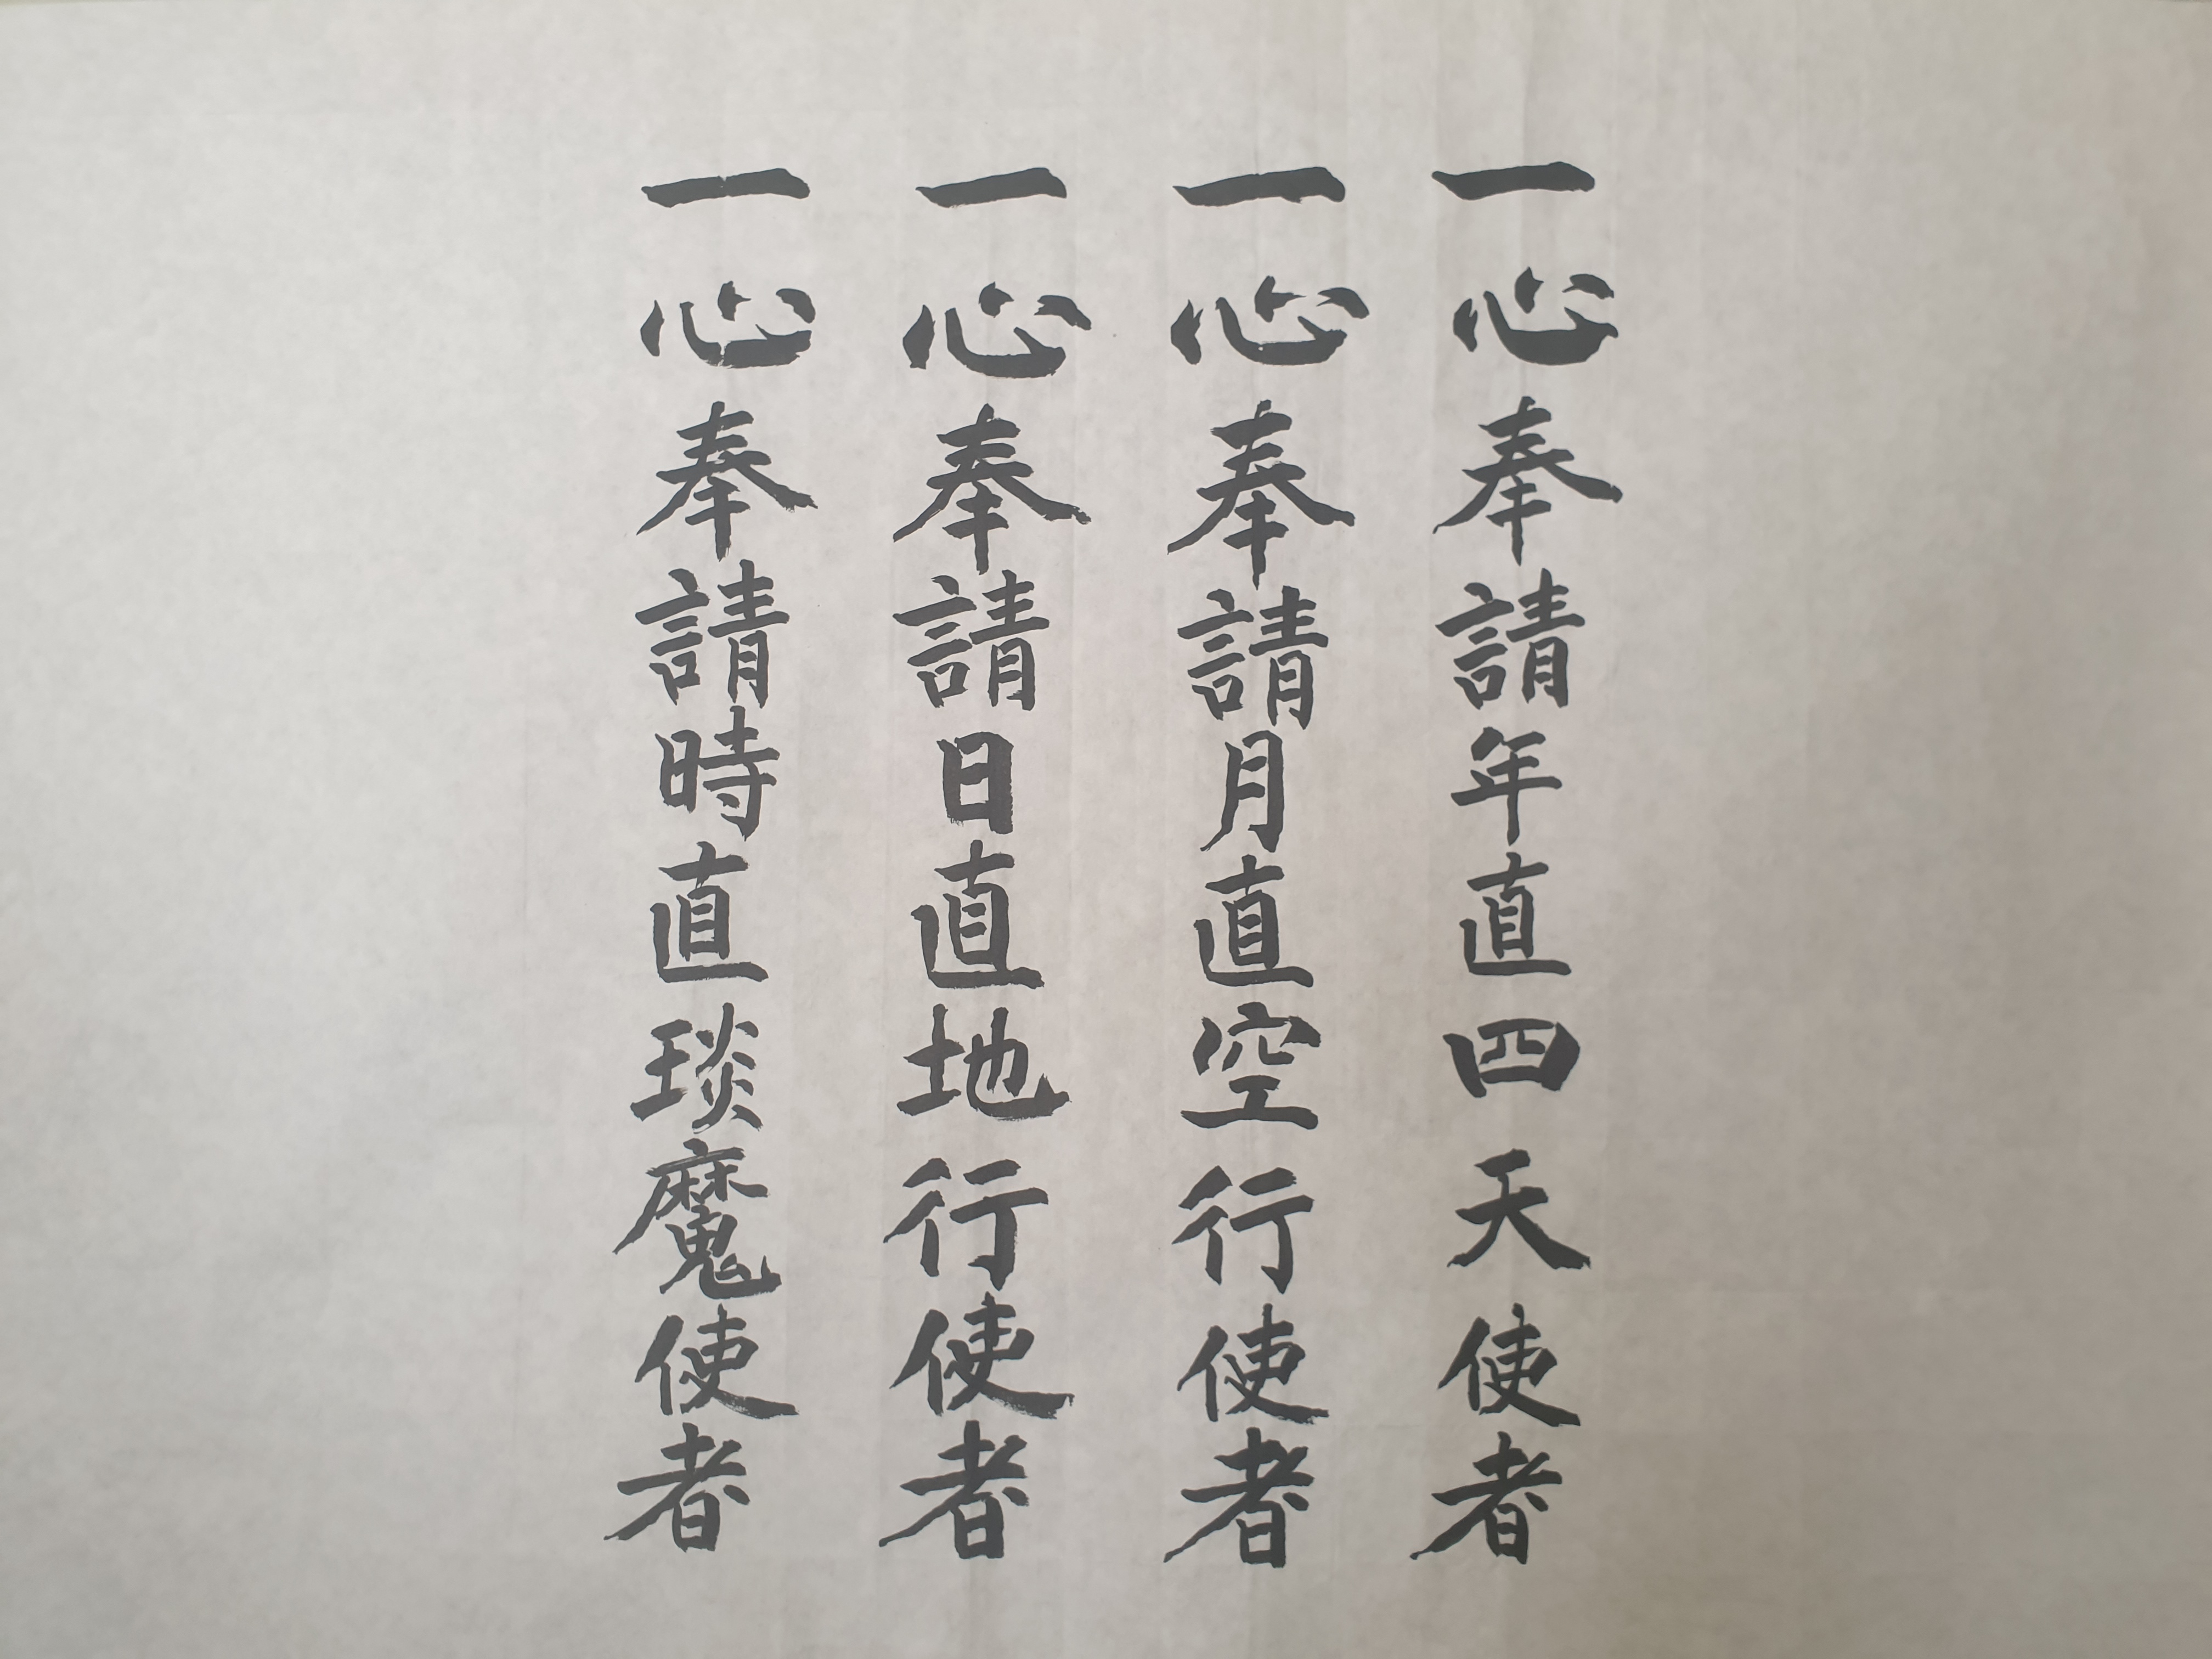 一心奉請年直四天使者
一心奉請月直空行使者
一心奉請日直地行使者
一心奉請時直琰魔使者